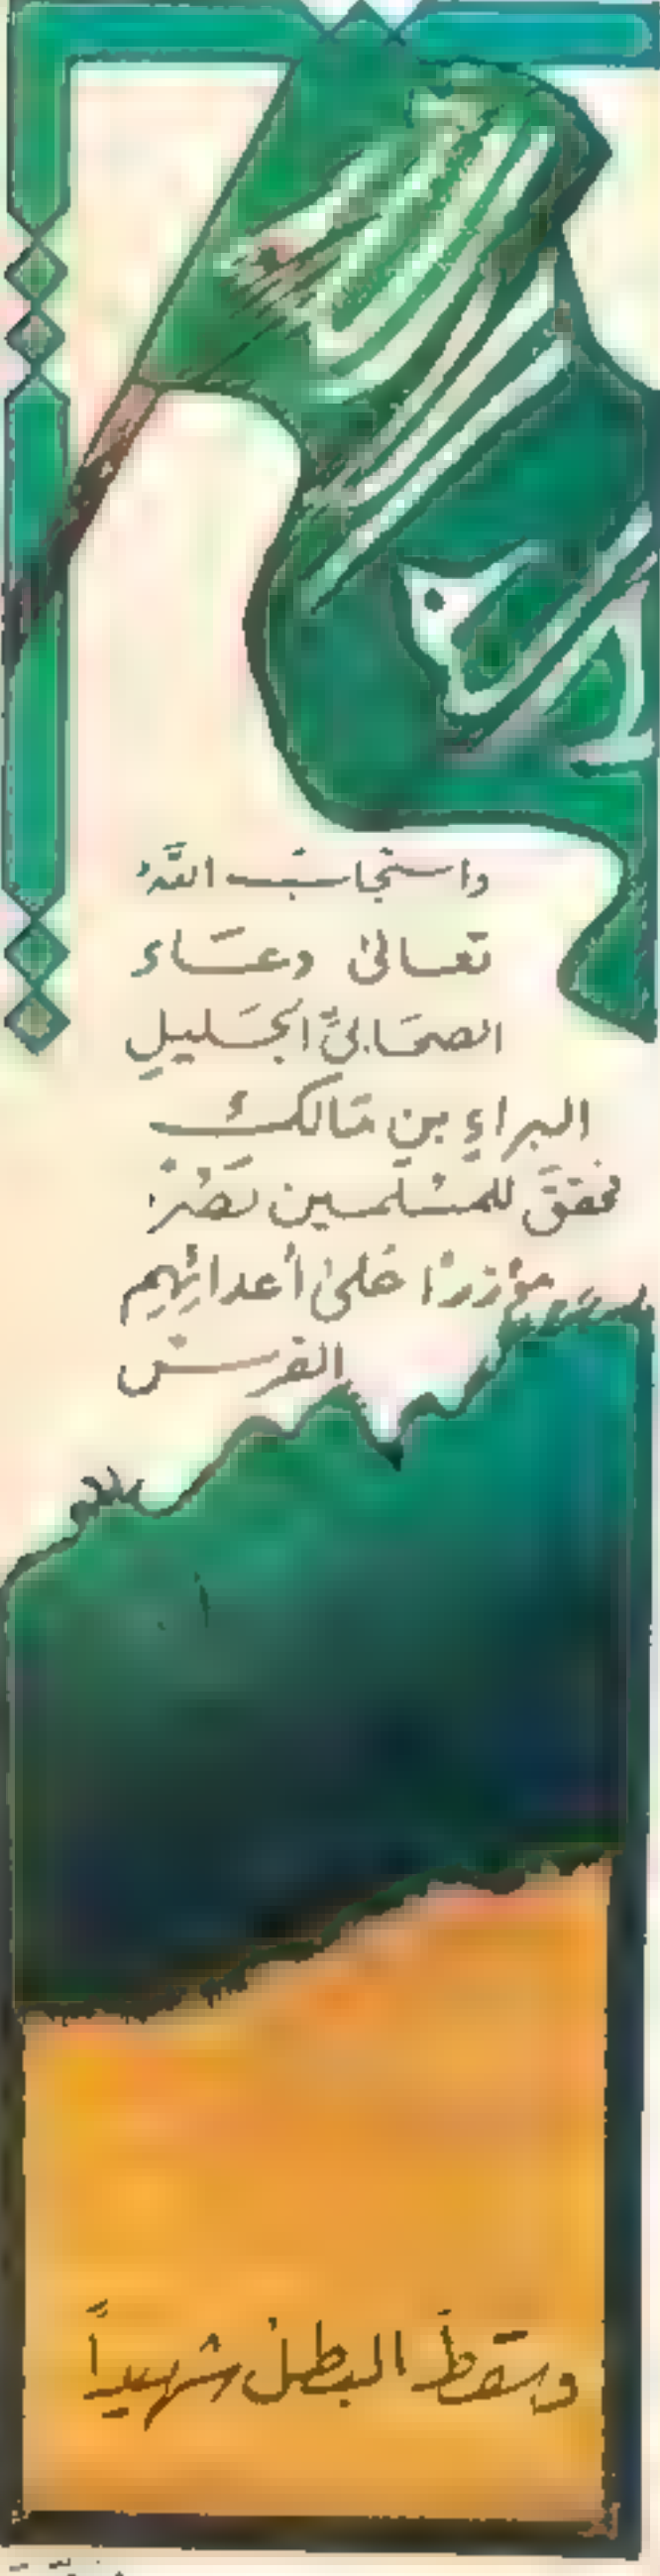 واستجابَ اللَّهُ
تعَالىٰ دعَاءَ
الصحَابيِّ الجَليلِ
البراءِ بنِ مَالكٍ
فحقّقَ للمسْلمينَ نصْرًا
مؤزرًا عَلىٰ أعدائِهِم
الفرسْ
وسَقطَ البطلُ شهيداً